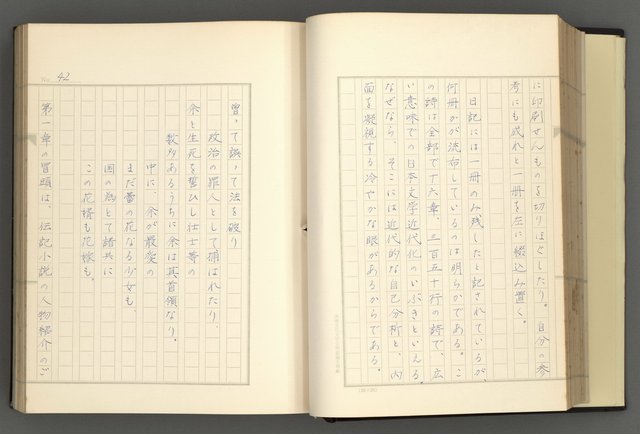 に印刷せんものを切りほどしたり。自分の参
考にも成れと一冊を左に綴込み置く。
日記には一冊のみ残したと記されているが、
何冊かが流布しているのは明らかである。こ
の詩は全部で十六章、三百五十行の詩で、広
い意味での日本文学近代化のいぶきといえる。
なぜなら、そこには近代的な自己分析と、内
面を凝視する冷やかな眼があるからである。
No. 42
曽って誤って法を破り
政治の罪人として捕はれたり、
余と生死を誓ひし壮士等の
数多あるうちに余は其首領なり。
中に、余が最愛の
まだ蕾の花なる少女も、
国の為とて諸共に
この花婿も花嫁も。
第一章の冒頭は、伝記小説の人物紹介のご